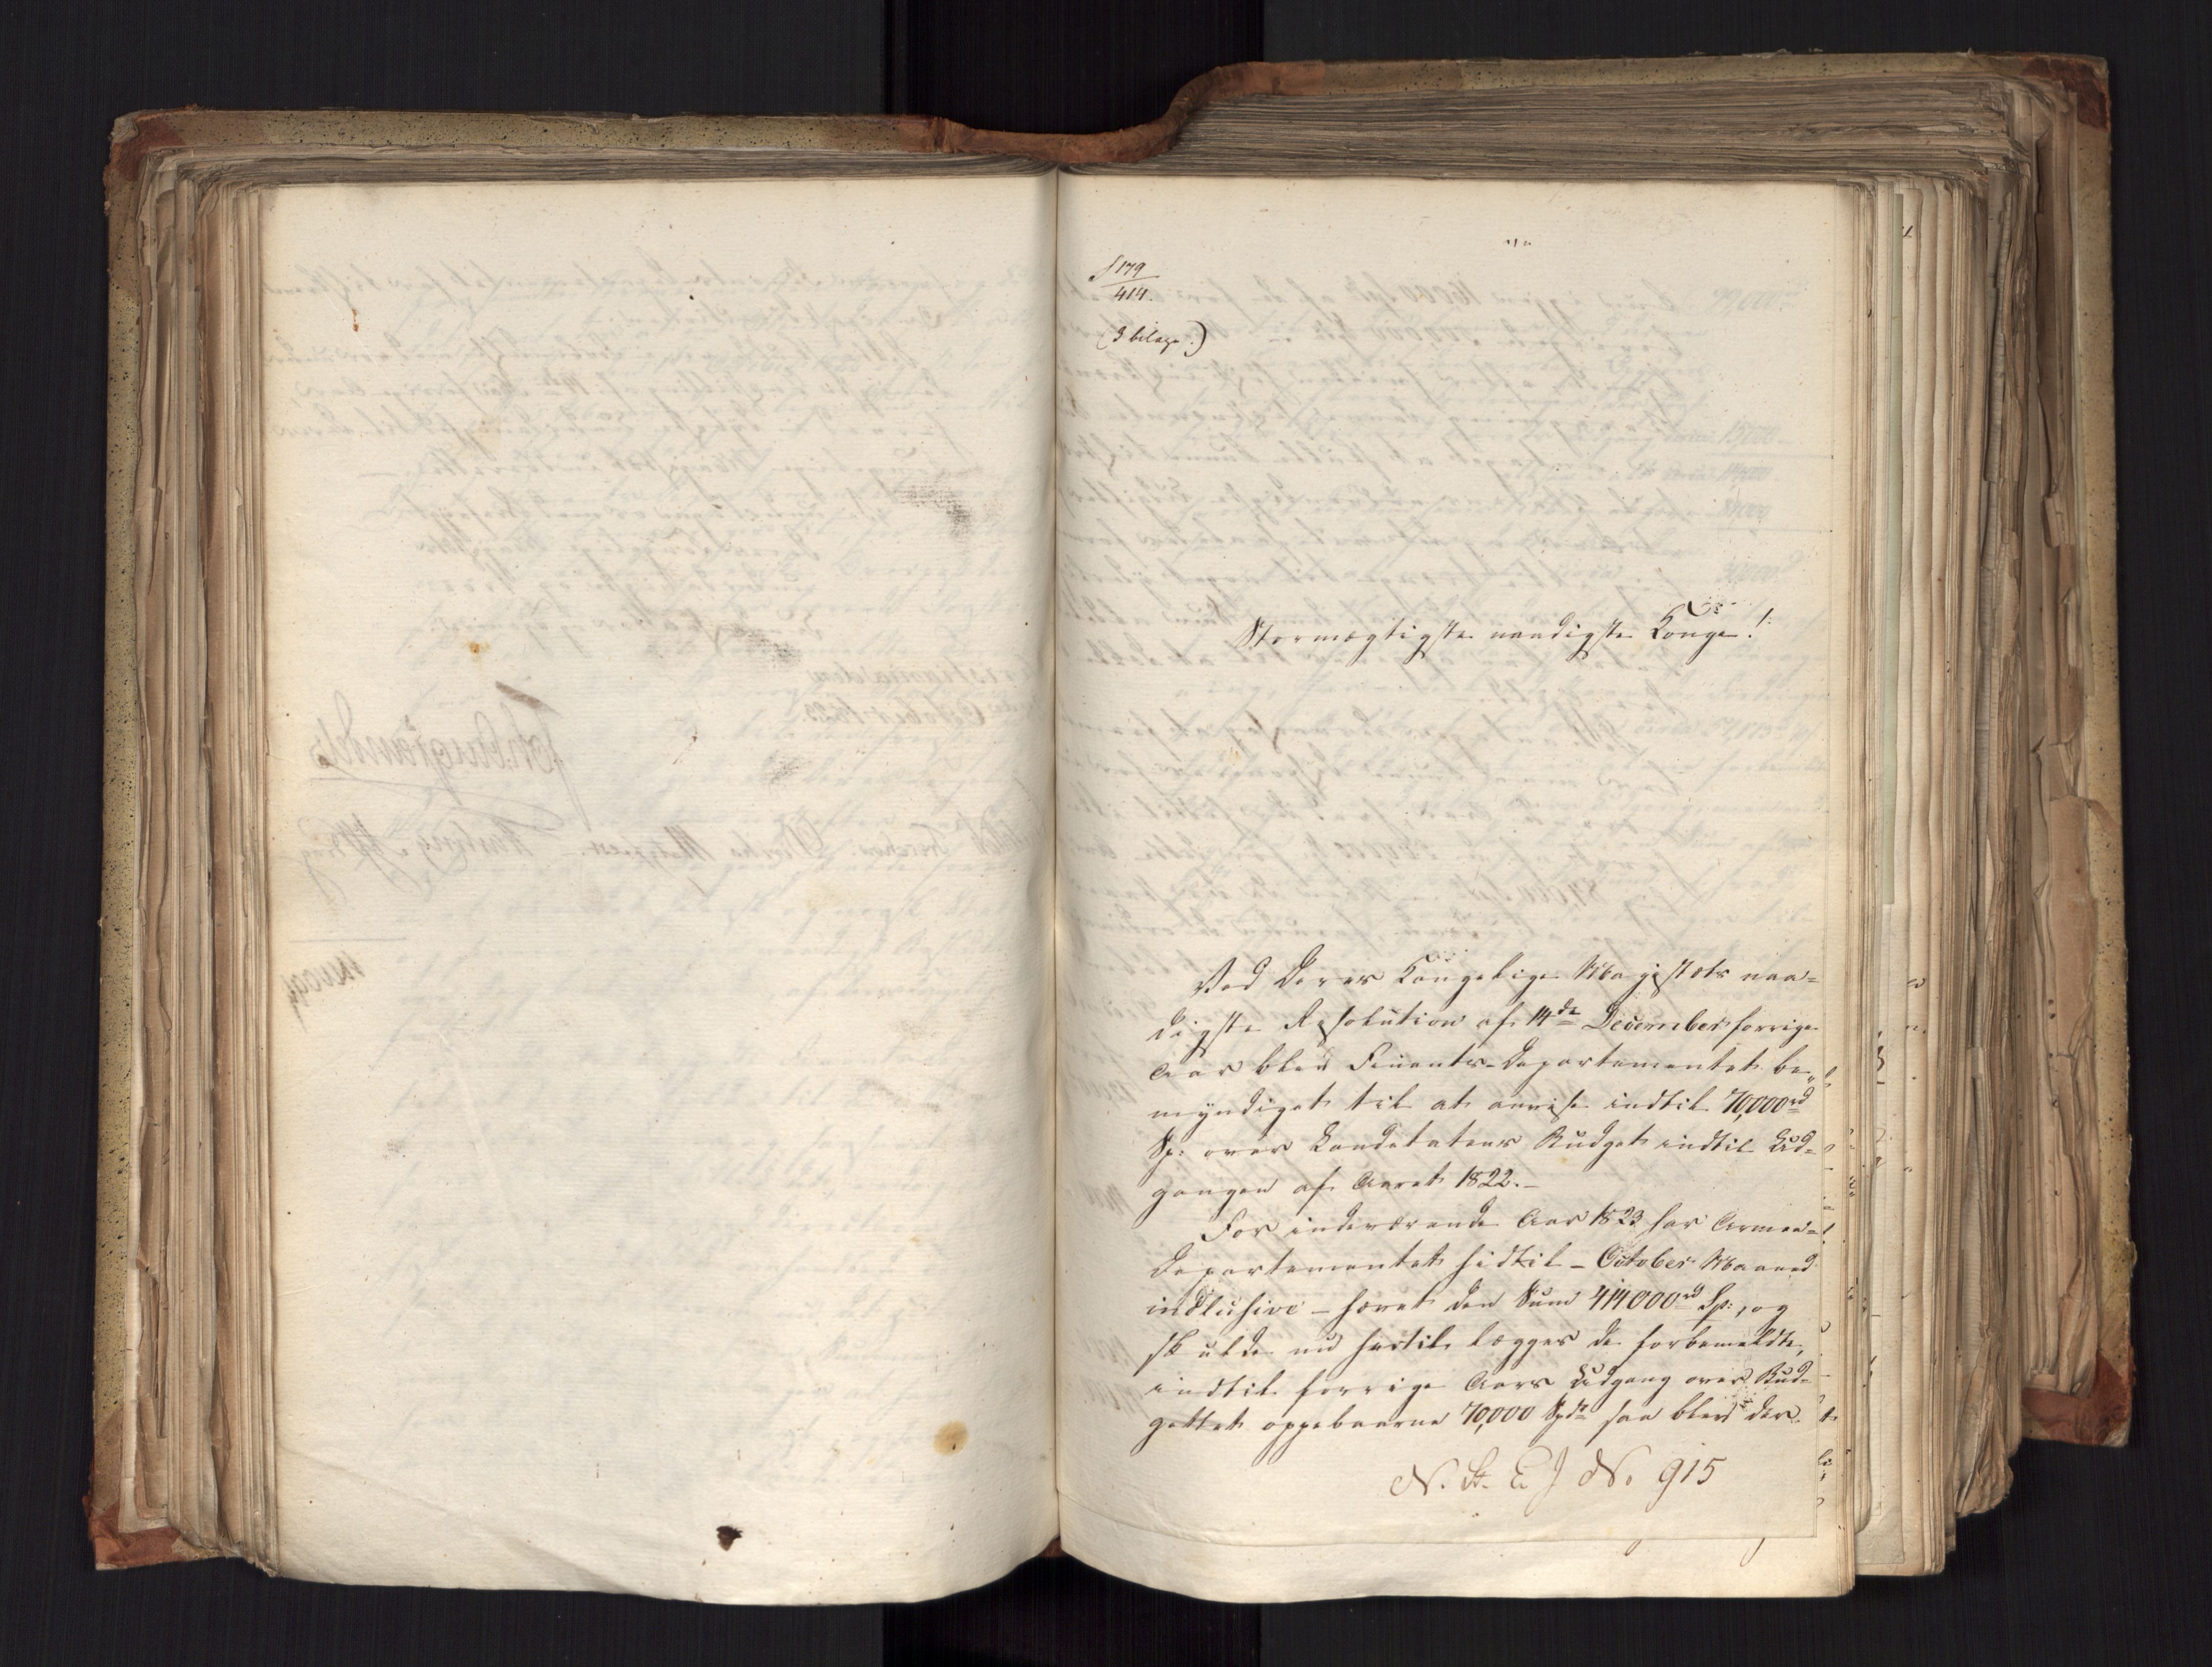 S 179
414.
(3 bilage.)
Stormægtigste naadigste Konge!
Ved Deres Kongelige Majestæts naa=
digste Resolution af 14de December forrige
Aar blev Finants-Departementet be=
myndiget til at anvise indtil 70,000rd
Sp: over Landetatens Budget indtil Ud=
gangen af Aaret 1822.-
For indeværende Aar 1823 har Armee=
Departementet hidtil - October Maaned
inclusive - hævet den Sum 414000rd Sp:, og
skulde nu hertil lægges de forbemeldte,
indtil forrige Aars Udgang over Bud=
gettet oppebaarne 70,000 Spd saa blev der
N. St. E. J No 915